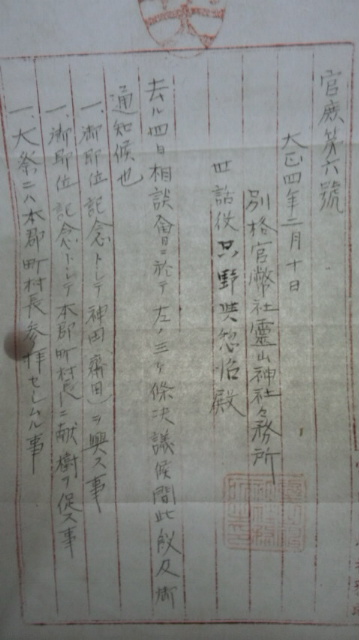 官庶第六號
大正四年二月十日
別格官幣社靈山神社々務所
世話役只野與惣治殿
去ル四日相談會ニ於テ左ノ三ケ條决議候間此段及御
通知候也
一、御即位記念トシテ神田(齋田)ヲ興ス事
一、御即位記念トシテ本郡町村長ニ献樹ヲ促ス事
一、大祭ニハ本郡町村長参拝セシムル事